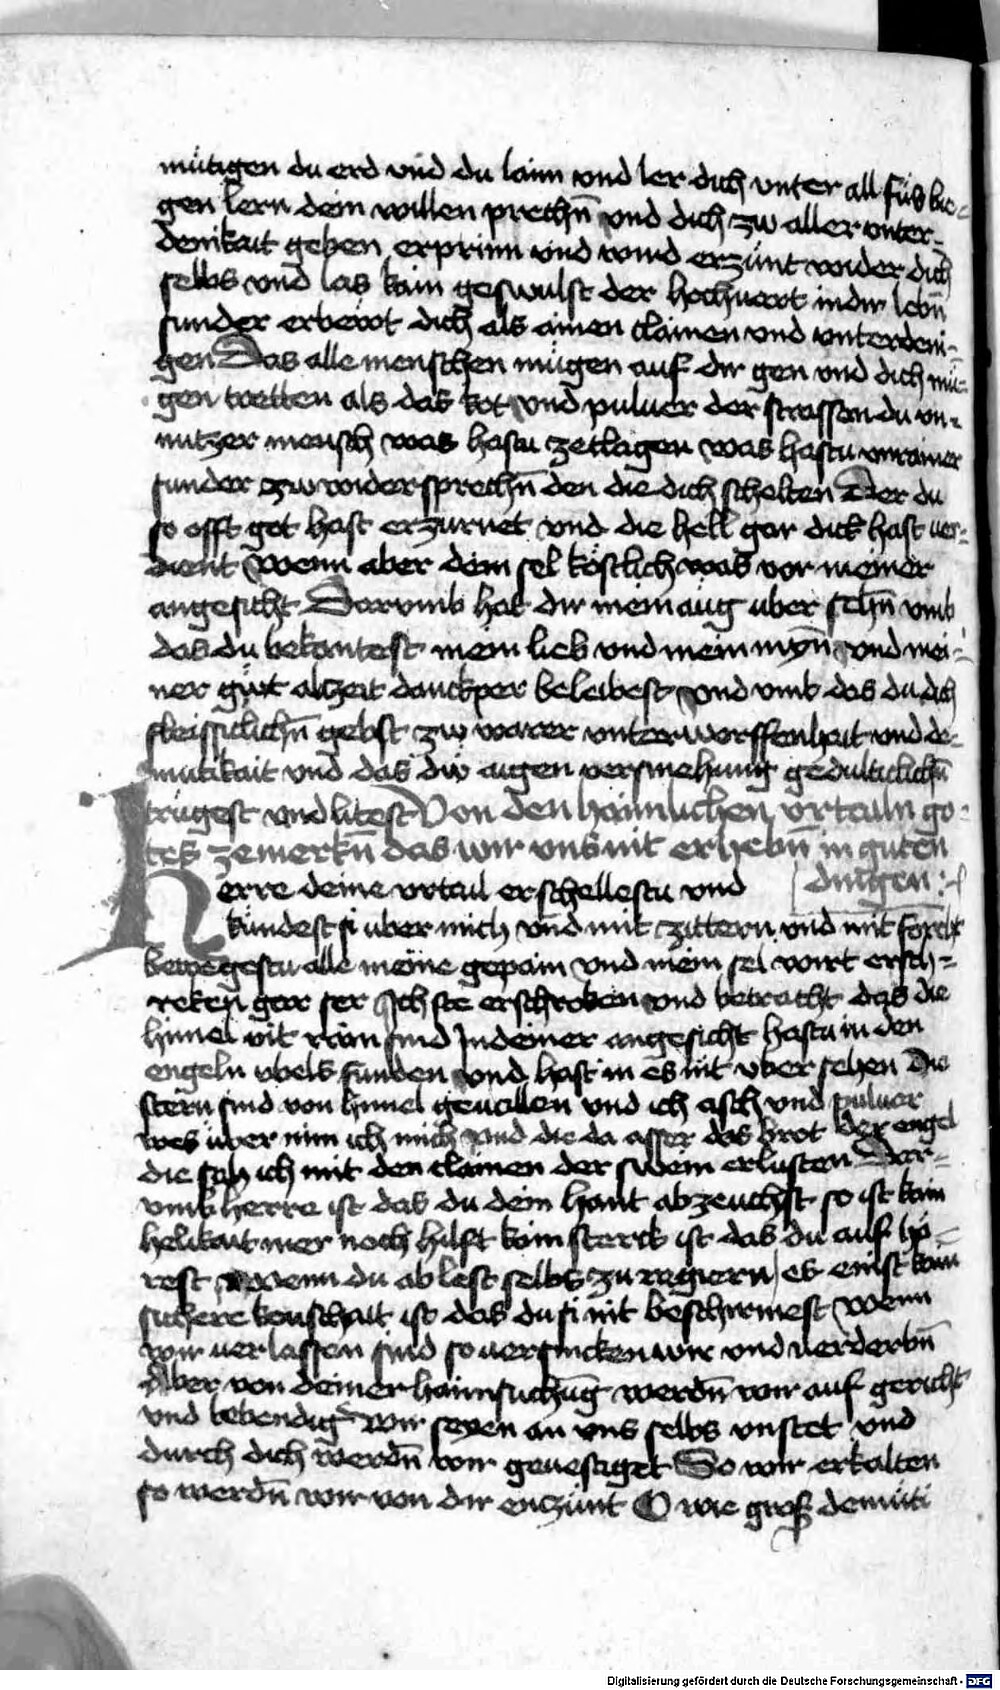 mütigen du erd vnd du laim vnd ler dich vnter all füs bie-
gen lern dein willen prechn̄ vnd dich zw aller vnter-
denikait geben erprinn vnd wind erzünt wider dich
selbs vnd las kain geswulst der hochuart in dir lebn̄
sunder erbeiot dich als ainen clainen vnd vnterdeni-
gen Das alle menschen mügen auf dir gen vnd dich mü-
gen tretten als das kot vnd puluer der strassen du vn-
nutzer mensch was hastu zeclagen was hastu vnrainer
sunder zw widersprechn̄ den die dich schelten Der du
so offt got hast erzurnet vnd die hell gar dick hast uer-
dient Wenn aber dein sel köstlich was vor meiner
angesicht Darvmb hat dir mein aug vber sehn̄ vmb
das du bekantest mein lieb vnd mein myn̄ vnd mei-
ner güt alzeit danckper beleibest vnd vmb das du dich
fleissiclichn̄ gebst zw warer vnterworffenhait vnd de-
mutikait vnd das dw aigen versmehung gedulticlichn̄
trügest vnd litest Von den haimlichen vrtailn go-
tes zemerkn̄ das wir vns nit erhebn̄ in guten
dingen
Herre deine vrtail erschellestu vnd
kündest si vber mich vnd mit zittern vnd mit forcht
bewegestu alle meine gepain vnd mein sel wirt ersch-
reken gar ser Ich ste erschroken vnd betracht das die
himel nit rain sind In deiner angesicht hastu in den
engeln vbels funden vnd hast in es nit vber sehen Die
stern sind von himel geuallen vnd ich asch vnd puluer
wes über nim ich mich vnd die da assen das brot der engel
die sah ich mit den clainen der swein erlusten Dar-
vmb herre ist das du dein hant abzeuchst so ist kain
helikait mer noch hilft kain sterck ist das du auf hö-
rest Wenn du ablest selbs zu regiern es einst kain
sichere keuschait ist das du si nit beschirmest Wenn
wir uerlassen sind so uersincken wir vnd uerderbn̄
Aber von deiner haimsuchūg werdn̄ wir auf gericht
vnd lebendig wir seyen an vns selbs vnstet vnd
durch dich werdn̄ wir geuestiget So wir erkalten
so werdn̄ wir von dir enczünt O wie groß demüti
Digitalisierung gefördert durch die Deutsche Forschungsgemeinschaft - DFG